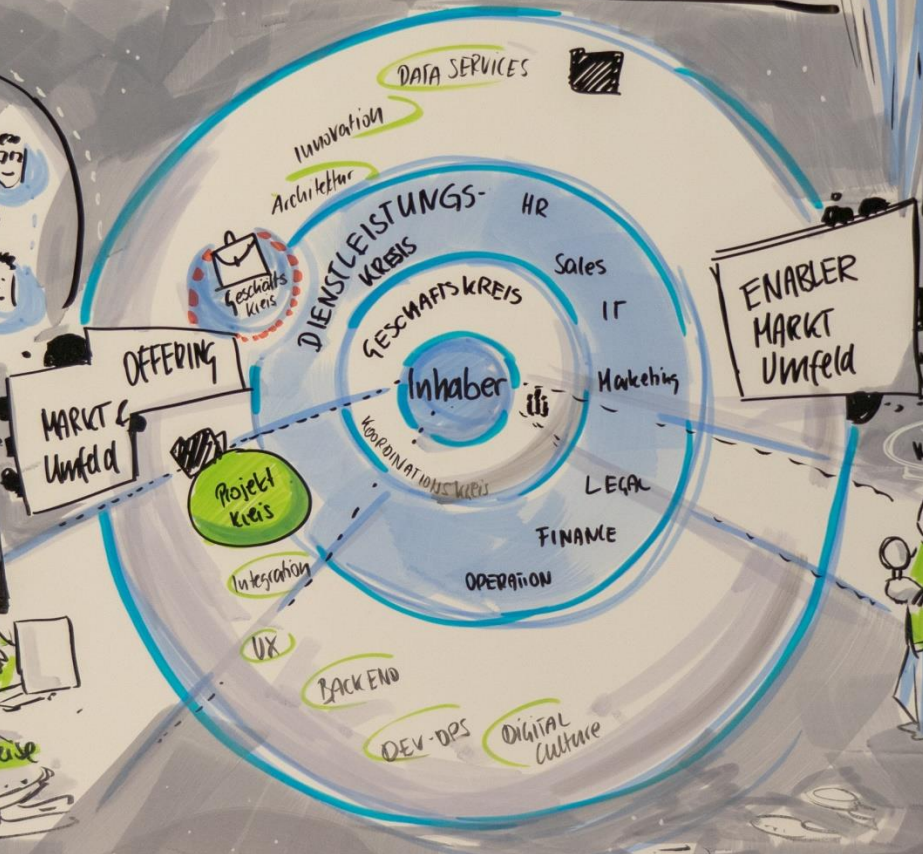 DATA SERVICES
Innovation
Architektur
DIENSTLEISTUNGS-
KREIS
HR
Sales
IT
Marketing
LEGAL
FINANCE
OPERATION
GESCHÄFTSKREIS
Inhaber
KOORDINATIONSKREIS
Geschäfts
kreis
OFFERING
MARKT &
Umfeld
ENABLER
MARKT
Umfeld
Projekt
kreis
Integration
UX
BACKEND
DEV-OPS
DIGITAL
Culture